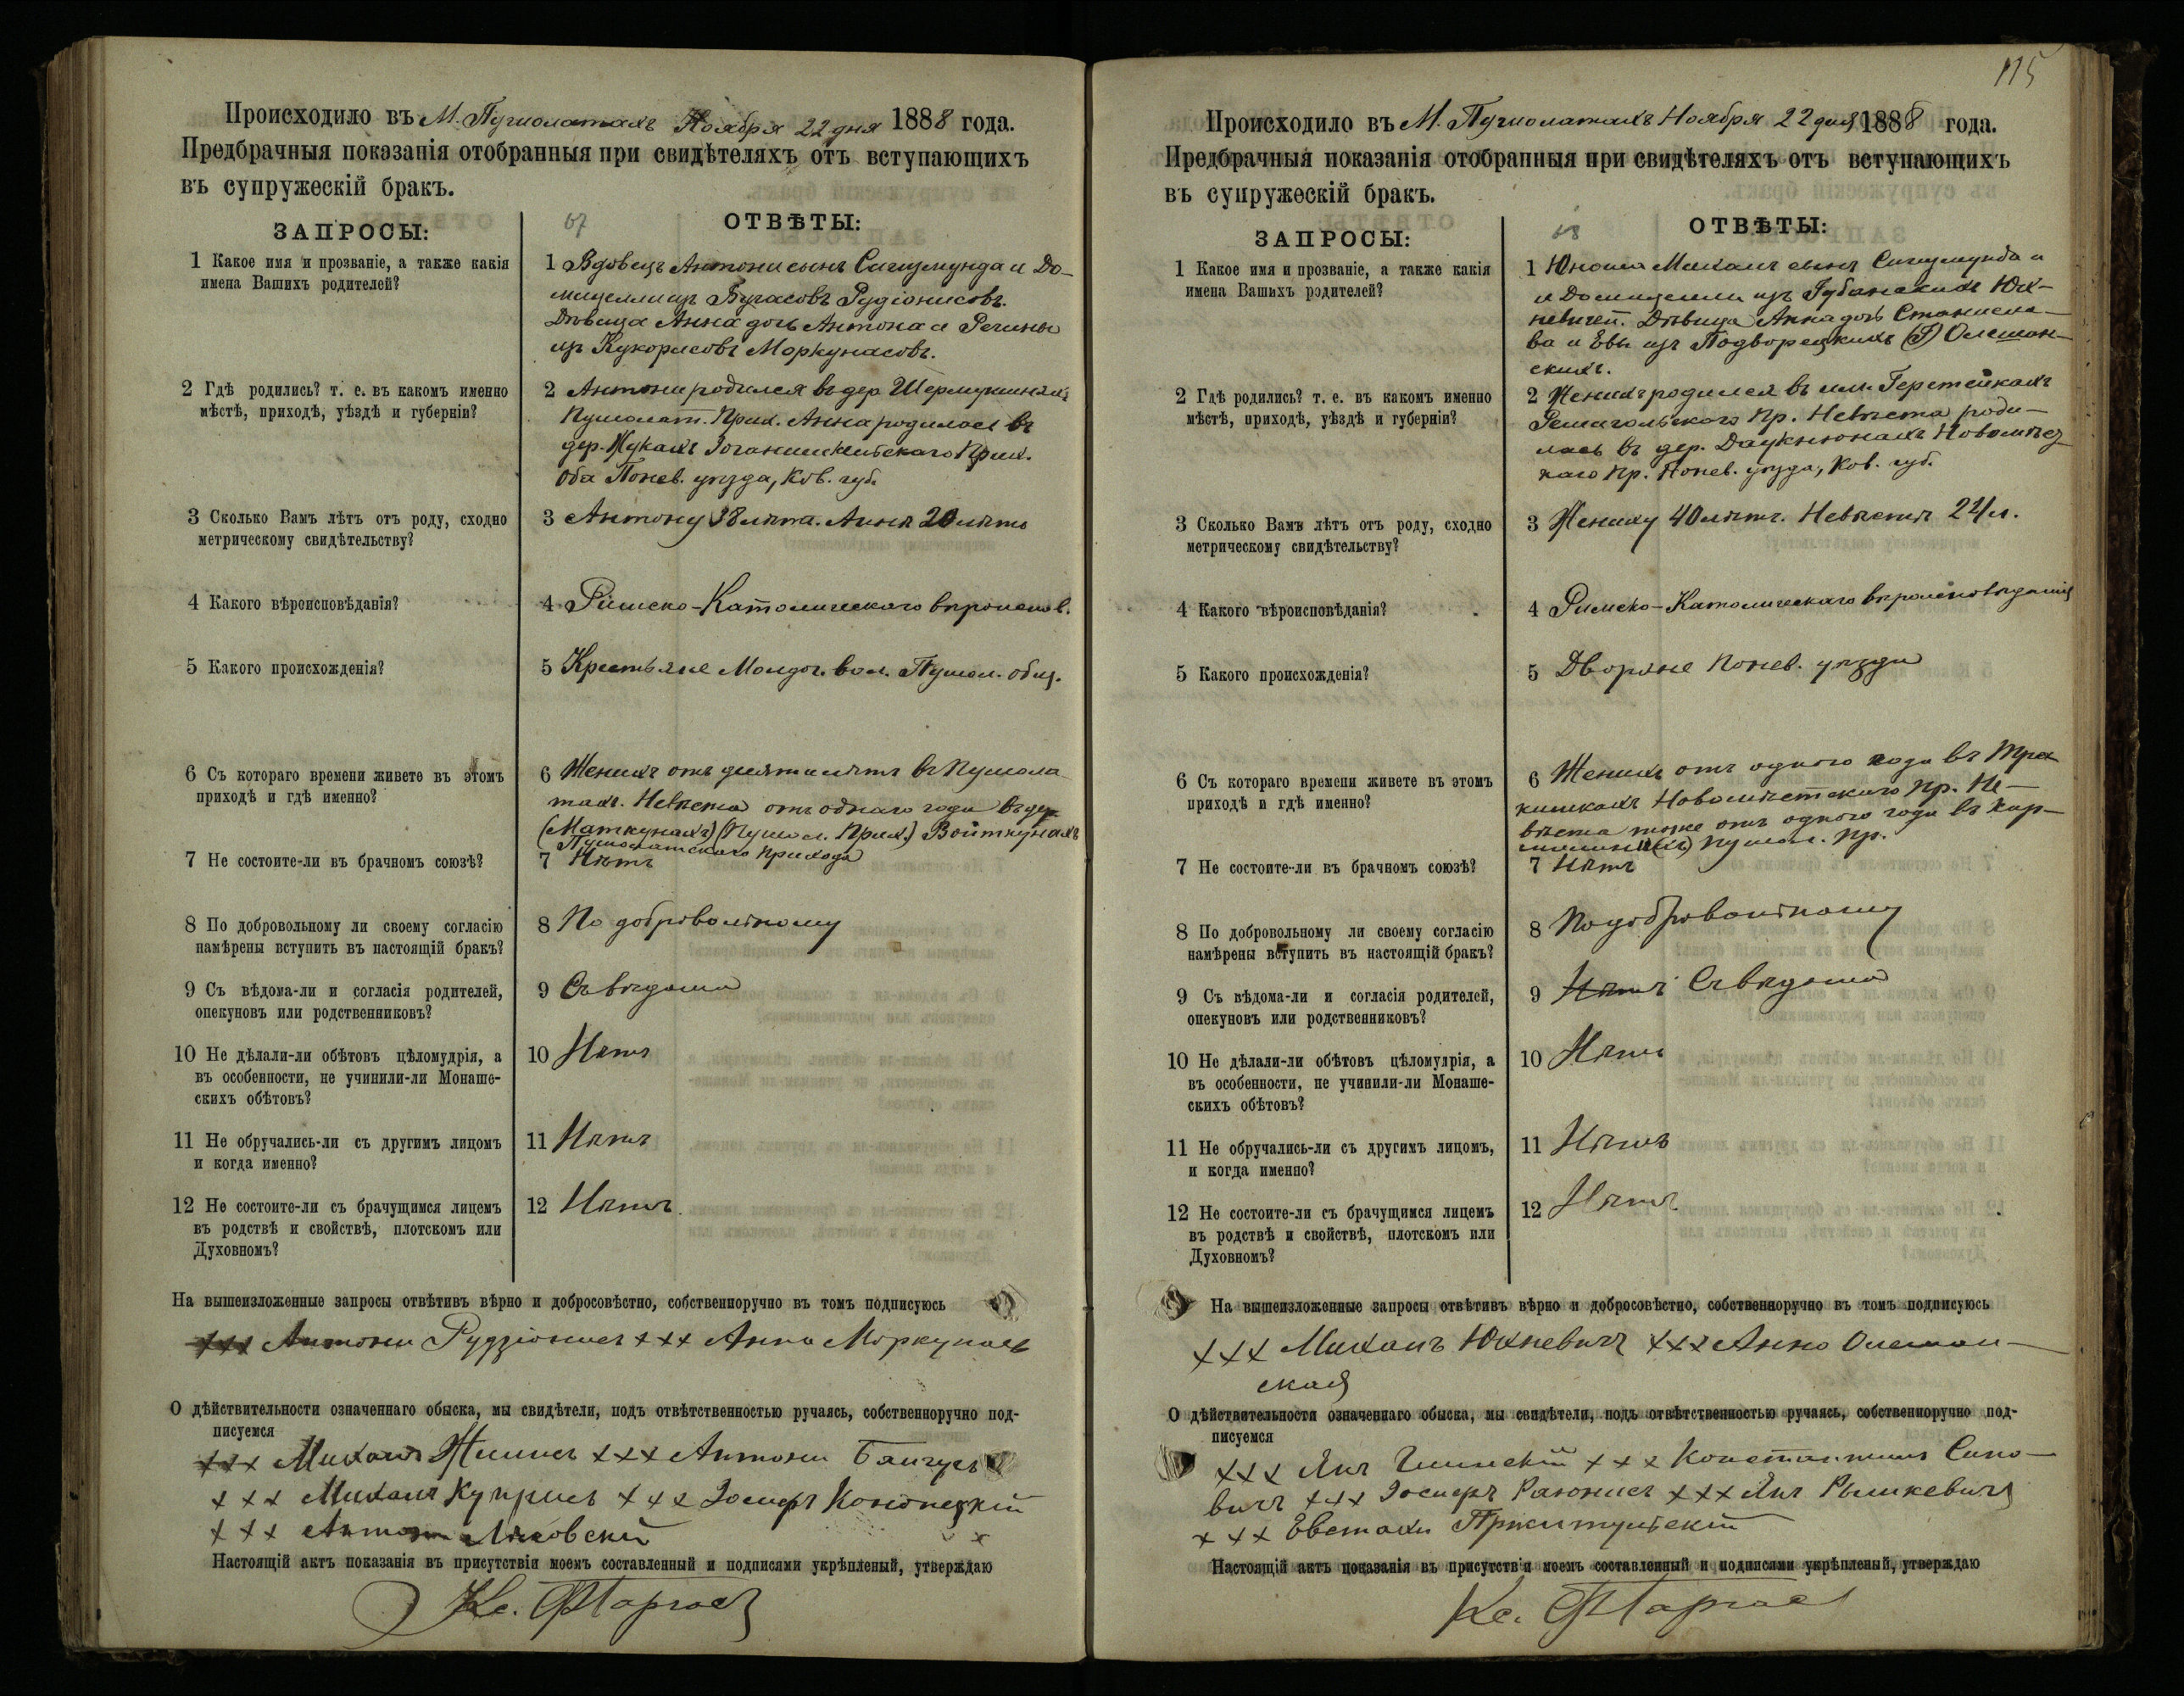 Происходило въ М. Пумполатахъ Ноября 22 дня 1888 года.
Предбрачныя показанія отобранныя при свидѣтеляхъ отъ вступающихъ
въ супружескій бракъ.
ЗАПРОСЫ:
67 ОТВѢТЫ:
1 Какое имя и прозваніе, а также какія
имена Вашихъ родителей?
1 Вдовецъ Антони сынъ Сигизмунда и До-
мицелли изъ Рудзіонисовъ.
Дѣвица Анна дочь Антона и Регины
изъ Моркунасовъ.
2 Гдѣ родились? т. е. въ какомъ именно
мѣстѣ, приходѣ, уѣздѣ и губерніи?
2 Антони родился въ дер.
Прих. Анна родилась въ
дер. Прих.
Оба Понев. уѣзда, Ков. губ.
3 Сколько Вамъ лѣтъ отъ роду, сходно
метрическому свидѣтельству?
3 Антону 38 лѣтъ. Аннѣ 20 лѣтъ
4 Какого вѣроисповѣданія?
4 Римско-Католическаго вѣроиспов.
5 Какого происхожденія?
5 Крестьяне вол. Пумпол. общ.
6 Съ котораго времени живете въ этомъ
приходѣ и гдѣ именно?
6 Женихъ отъ лѣтъ въ Пумпола-
тахъ. Невѣста отъ однаго года въ дер
(Маткунахъ) (Пумпол. Прих.) Войткунахъ
прихода
7 Не состоите-ли въ брачномъ союзѣ?
7 Нѣтъ
8 По добровольному ли своему согласію
намѣрены вступить въ настоящій бракъ?
8 По добровольному
9 Съ вѣдома-ли и согласія родителей,
опекуновъ или родственниковъ?
9 Съ вѣдома
10 Не дѣлали-ли обѣтовъ цѣломудрія, а
въ особенности, не учинили-ли Монаше-
скихъ обѣтовъ?
10 Нѣтъ
11 Не обручались-ли съ другимъ лицомъ
и когда именно?
11 Нѣтъ
12 Не состоите-ли съ брачущимся лицемъ
въ родствѣ и свойствѣ, плотскомъ или
Духовномъ?
12 Нѣтъ.
На вышеизложенные запросы отвѣтивъ вѣрно и добросовѣстно, собственноручно въ томъ подписуюсь
xxx Антони Рудзіонисъ xxx Анна Моркунасъ
О дѣйствительности означеннаго обыска, мы свидѣтели, подъ отвѣтственностью ручаясь, собственноручно под-
писуемся
xxx Михаилъ xxx Антони
xxx Михаилъ Куприсъ xxx Іосифъ Конопецкій
xxx Антони
Настоящій актъ показанія въ присутствіи моемъ составленный и подписями укрѣпленый, утверждаю
Кс.
115
Происходило въ М. Пумполатахъ Ноября 22 дня 1888 года.
Предбрачныя показанія отобранныя при свидѣтеляхъ отъ вступающихъ
въ супружескій бракъ.
ЗАПРОСЫ:
68 ОТВѢТЫ:
1 Какое имя и прозваніе, а также какія
имена Вашихъ родителей?
1 Юноша Михаилъ сынъ Сигизмунда и
и Домицелли изъ Юх-
невичей. Дѣвица Анна дочь Станисла-
ва и Евы изъ Подворецкихъ
скихъ.
2 Гдѣ родились? т. е. въ какомъ именно
мѣстѣ, приходѣ, уѣздѣ и губерніи?
2 Женихъ родился въ им.
Пр. Невѣста роди-
лась въ дер. Даукнюнахъ Новомѣст
каго Пр. Понев. уѣзда, Ков. губ.
3 Сколько Вамъ лѣтъ отъ роду, сходно
метрическому свидѣтельству?
3 Жениху 40 лѣтъ. Невѣстѣ 24 л.
4 Какого вѣроисповѣданія?
4 Римско-Католическаго вѣроисповѣданія
5 Какого происхожденія?
5 Дворяне Понев. уѣзда
6 Съ котораго времени живете въ этомъ
приходѣ и гдѣ именно?
6 Женихъ отъ одного года въ
Новомѣстскаго Пр. Не-
вѣста тоже отъ одного года въ
Пумпол. Пр.
7 Не состоите-ли въ брачномъ союзѣ?
7 Нѣтъ
8 По добровольному ли своему согласію
намѣрены вступить въ настоящій бракъ?
8 По добровольному
9 Съ вѣдома-ли и согласія родителей,
опекуновъ или родственниковъ?
9 Нѣтъ Съ вѣдома
10 Не дѣлали-ли обѣтовъ цѣломудрія, а
въ особенности, не учинили-ли Монаше-
скихъ обѣтовъ?
10 Нѣтъ
11 Не обручались-ли съ другимъ лицомъ,
и когда именно?
11 Нѣтъ
12 Не состоите-ли съ брачущимся лицемъ
въ родствѣ и свойствѣ, плотскомъ или
Духовномъ?
12 Нѣтъ
На вышеизложенные запросы отвѣтивъ вѣрно и добросовѣстно, собственноручно въ томъ подписуюсь
xxx Михаилъ Юхневичъ xxx Анна
ская
О дѣйствительности означеннаго обыска, мы свидѣтели, подъ отвѣтственностью ручаясь, собственноручно под-
писуемся
xxx Янъ xxx Константинъ
вичъ xxx Іосифъ xxx Янъ Рымкевичъ
xxx Евстахи
Настоящій актъ показанія въ присутствіи моемъ составленный и подписями укрѣпленый, утверждаю
Кс.